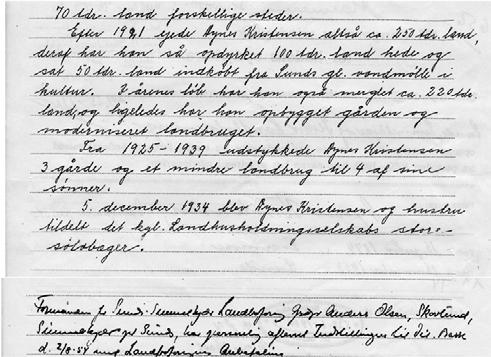 70 tdr. land forskellige steder.
Efter 1921 ejede Agnes Kristensen altså ca. 250 tdr. land,
deraf har han så opdyrket 100 tdr. land hede og
sat 50 tdr. land indkøbt fra Sunds gl. vandmølle i
kultur. I årenes løb har han også merglet ca. 220 tdr.
land, og ligeledes har han opbygget gården og
moderniseret landbruget.
Fra 1925-1939 udstykkede Agnes Kristensen
3 gårde og et mindre landbrug til 4 af sine
sønner.
5. december 1934 blev Agnes Kristensen og hustru
tildelt det kgl. Landhusholdningsselskabs store
sølvbæger.
Formanden for Sunds-Simmelkjær Landboforening Gdr. Anders Olsen, Skovlund,
Simmelkjær pr. Sunds, har
d. 2/8-54 Landboforenings Anbefaling